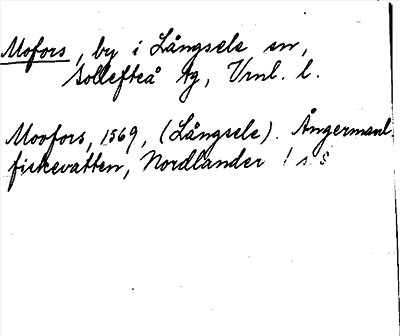 Mofors, by i Långsele sn,
Sollefteå tg, Vrnl. l.
Moofors, 1569, (Långsele). Ångermanl.
fiskevatten, Nordlander 1 s 8